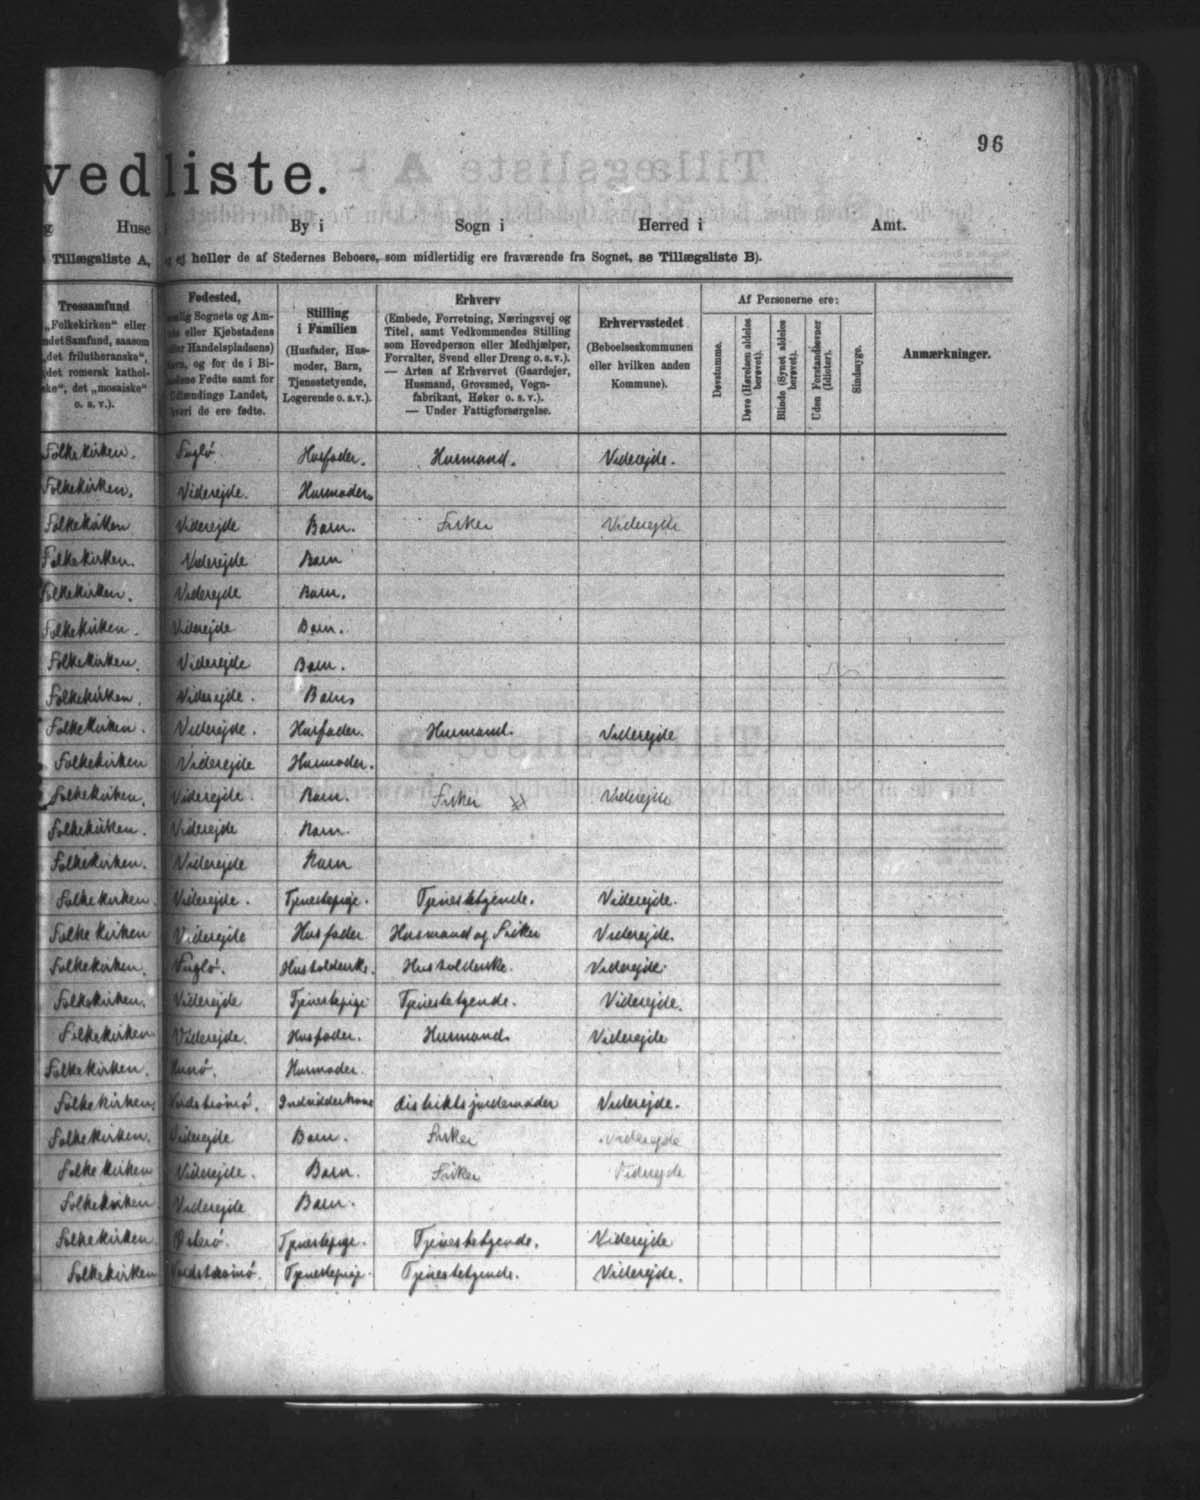 96
vedliste.
g Huse By i Sogn i Herred i Amt.
Tillægsliste A, ej heller de af Stedernes Beboere, som midlertidig ere fraværende fra Sognet, se Tillægsliste B).
Trossamfund
„Folkekirken“ eller
ndet Samfund, saasom
„det frilutheranske“,
det romersk kathol-
ske“, det „mosaiske“
o. s. v.).
Fødested,
Sognets og Am-
eller Kjøbstadens
Handelspladsens)
og for de i Bi-
Fødte samt for
Udlændinge Landet,
hvori de ere fødte.
Stilling
i Familien
(Husfader, Hus-
moder, Barn,
Tjenestetyende,
Logerende o. s. v.).
Erhverv
(Embede, Forretning, Næringsvej og
Titel, samt Vedkommendes Stilling
som Hovedperson eller Medhjælper,
Forvalter, Svend eller Dreng o. s. v.).
— Arten af Erhvervet (Gaardejer,
Husmand, Grovsmed, Vogn-
fabrikant, Høker o. s. v.).
— Under Fattigforsørgelse.
Erhvervsstedet
(Beboelseskommunen
eller hvilken anden
Kommune).
Af Personerne ere:
Døvstumme.
Døve (Hørelsen aldeles berøvet).
Blinde (Synet aldeles berøvet).
Uden Forstandsevner (Idioter).
Sindssyge.
Anmærkninger.
Folkekirken. Fuglø Husfader. Husmand. Viderejde.
Folkekirken. Viderejde. Husmoder.
Folkekirken Viderejde Barn. Fisker Viderejde
Folkekirken. Viderejde Barn
Folkekirken. Viderejde Barn.
Folkekirken. Viderejde Barn.
Folkekirken. Viderejde Barn.
Folkekirken. Viderejde. Barn
Folkekirken. Viderejde. Husfader. Husmand. Viderejde
Folkekirken Viderejde Husmoder.
Folkekirken. Viderejde. Barn. Fisker Viderejde
Folkekirken. Viderejde Barn.
Folkekirken. Viderejde Barn
Folkekirken. Viderejde. Tjenestepige. Tjenestetyende. Viderejde.
Folkekirken Viderejde Husfader Husmand og Fisker Viderejde.
Folkekirken. Fuglø. Husholderske. Husholderske. Viderejde.
Folkekirken. Viderejde Tjenestepige Tjenestetyende. Viderejde.
Folkekirken Viderejde. Husfader. Husmand. Viderejde
Folkekirken. Kunø. Husmoder.
Folkekirken. Nordstrømø. distriktsjordemoder Viderejde.
Folkekirken. Viderejde Barn. Fisker Viderejde
Folkekirken Viderejde. Barn. Fisker Viderejde
Folkekirken Viderejde Barn.
Folkekirken Østerø. Tjenestepige. Tjenestetyende. Viderejde
Folkekirken Nordstrømø. Tjenestepige. Tjenestetyende. Viderejde.